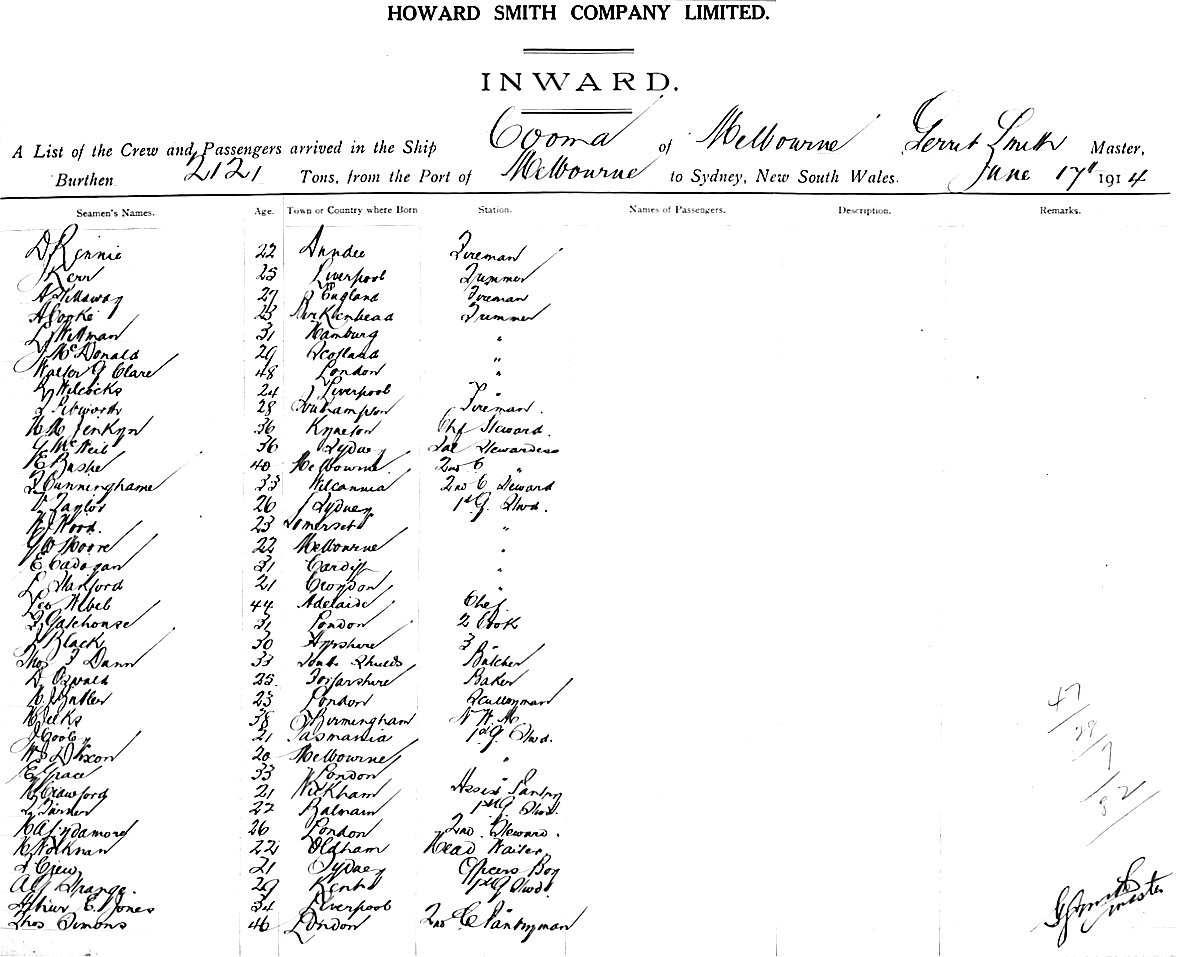 HOWARD SMITH COMPANY LIMITED.
INWARD.
A List of the Crew and Passengers arrived in the Ship Cooma of Melbourne Gerrit Smith Master,
Burthen 2121 Tons, from the Port of Melbourne to Sydney, New South Wales. June 17th 1914
Seamen's Names. Age. Town or Country where Born Station. Names of Passengers. Description. Remarks.
D Rennie 22 Dundee Fireman
J Kerr 25 Liverpool Trimmer
27 England Fireman
A Cooke 23 Birkenhead Trimmer
31 Hamburg "
J McDonald 29 Scotland "
Walter G Clare 48 London "
Wilcocks 24 Liverpool "
28 Southampton Fireman.
Jenkyn 36 Kyneton Chf Steward.
McNeil 36 Sydney Stewardess
40 Melbourne 2nd C "
Cunninghame 33 Wilcannia 2nd C Steward
V Taylor 26 Sydney 1st G. Stwd.
Wood. 23 Somerset "
G W Moore 22 Melbourne "
E Cadogan 31 Cardiff "
21 Croydon "
Leo 44 Adelaide Chef
Gatehouse 31 London 2 Cook
J Black 30 Ayrshire 3 "
Thos F Dann 33 South Shields Butcher
D Oswald 25. Forfarshire Baker
Butler 23 London Scullyman
38 Birmingham N. W. M
21 Tasmania 1st G. Stwd.
Dixon 20 Melbourne "
E Grace 33 London "
Crawford 21 Wickham Assist Pantry
Turner 22 Balmain 1st G Stwd.
Sydamore 26 London 2nd Steward.
22 Oldham Head Waiter
21 Sydney Officers Boy
Strange. 29 Kent 1st G Stwd
Arthur E Jones 34 Liverpool "
Thos Simons 46 London 2nd C Pantryman
47
7
G Smith
master